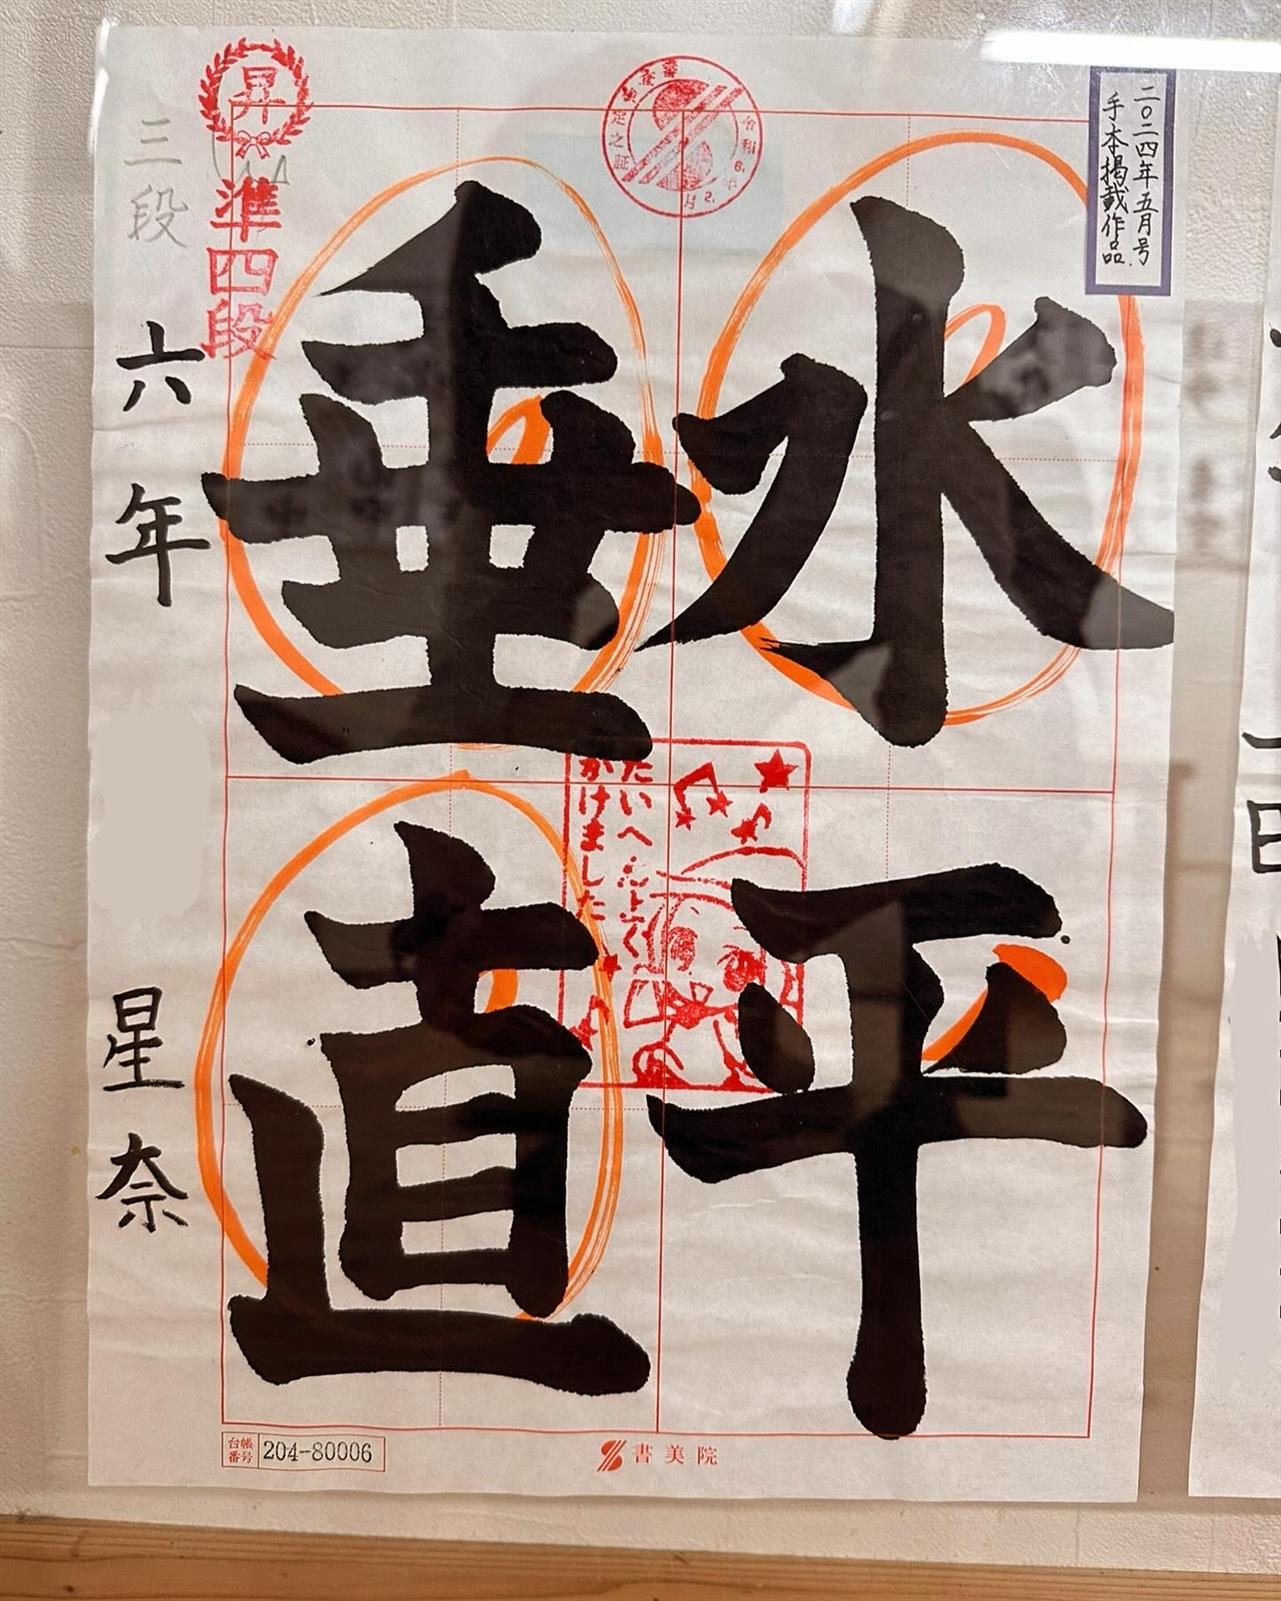 二〇二四年五月号
手本掲載作品
水平
垂直
昇
準四段
三段
六年
星奈
たいへんよく
かけました
台帳
番号
204-80006
書美院